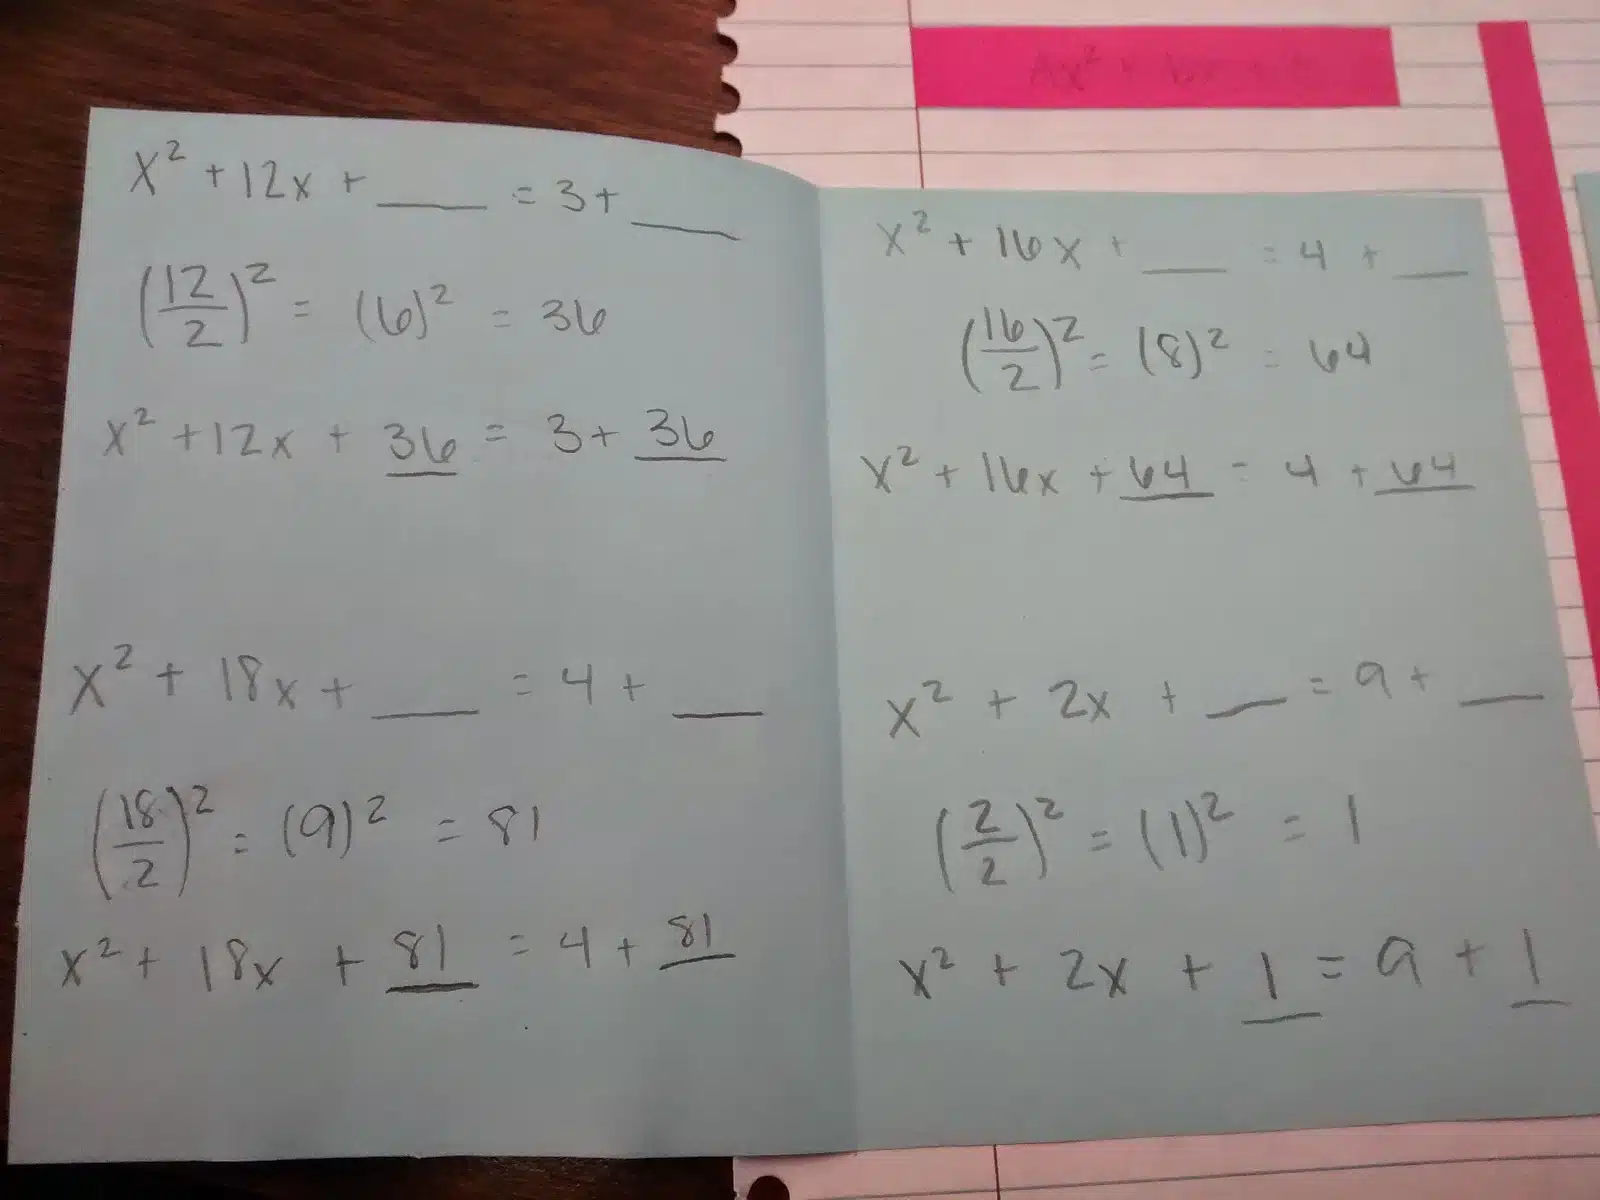 x² + 12x + ___ = 3 + ___
(12/2)² = (6)² = 36
x² + 12x + 36 = 3 + 36
x² + 18x + ___ = 4 + ___
(18/2)² = (9)² = 81
x² + 18x + 81 = 4 + 81
x² + 16x + ___ = 4 + ___
(16/2)² = (8)² = 64
x² + 16x + 64 = 4 + 64
x² + 2x + ___ = 9 + ___
(2/2)² = (1)² = 1
x² + 2x + 1 = 9 + 1